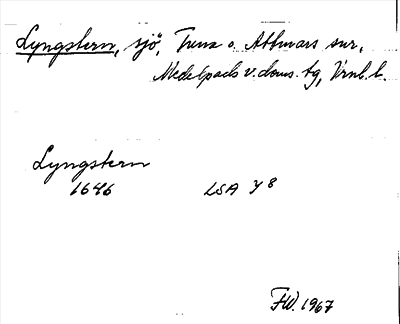 Lyngstern, sjö, Tuna o. Attmars snr,
Medelpads v. doms. tg, Vrnl. l.
Lyngstern
1646 LSA Y 8
FW. 1967